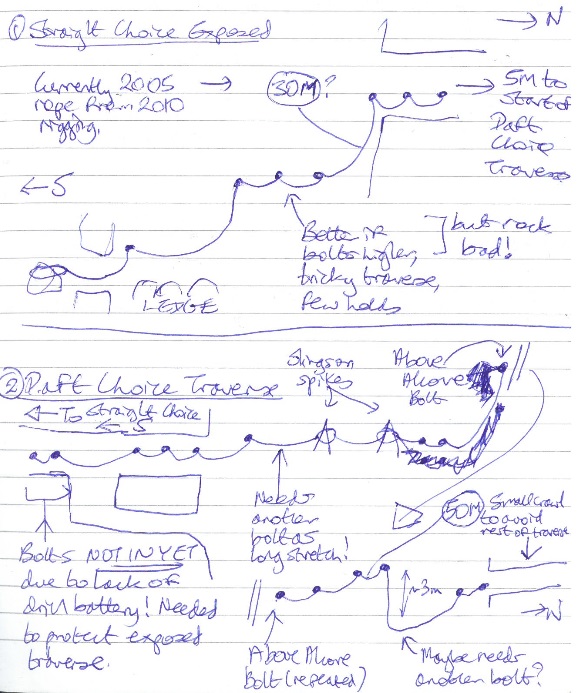 ① Straight Choice Exposed
→ N
Currently 2005
rope from 2010
rigging.
30M?
→ 5M to
start of
Daft
Choice
Traverse
← S
Better if
bolts higher,
tricky traverse,
few holds
but rock
bad!
LEDGE
② Daft Choice Traverse
← To Straight Choice
← S
Slings on
spikes
Above
Alcove
Bolt
Needs
another
bolt as
long stretch!
50M
Small crawl
to avoid
rest of traverse
Bolts NOT IN YET
due to lack of
drill battery! Needed
to protect exposed
traverse.
~3m
→ N
Above Alcove
Bolt (repeated)
Maybe needs
another bolt?